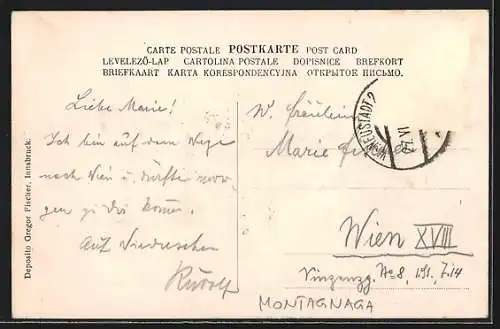 CARTE POSTALE POSTKARTE POST CARD
LEVELEZŐ-LAP CARTOLINA POSTALE DOPISNICE BREFKORT
BRIEFKAART KARTA KORESPONDENCYJNA ОТКРЫТОЕ ПИСЬМО.
Deposito Gregor Fischer, Innsbruck.
Liebe Marie!
Ich bin auf dem Wege
nach Wien u. dürfte mor-
gen zu dir kommen.
Auf Wiedersehen
Rudolf
W. Fräulein
Marie
NEUSTADT 2
VI
Wien XVIII
Vinzenzg. No 8, I St., T. 14
MONTAGNAGA